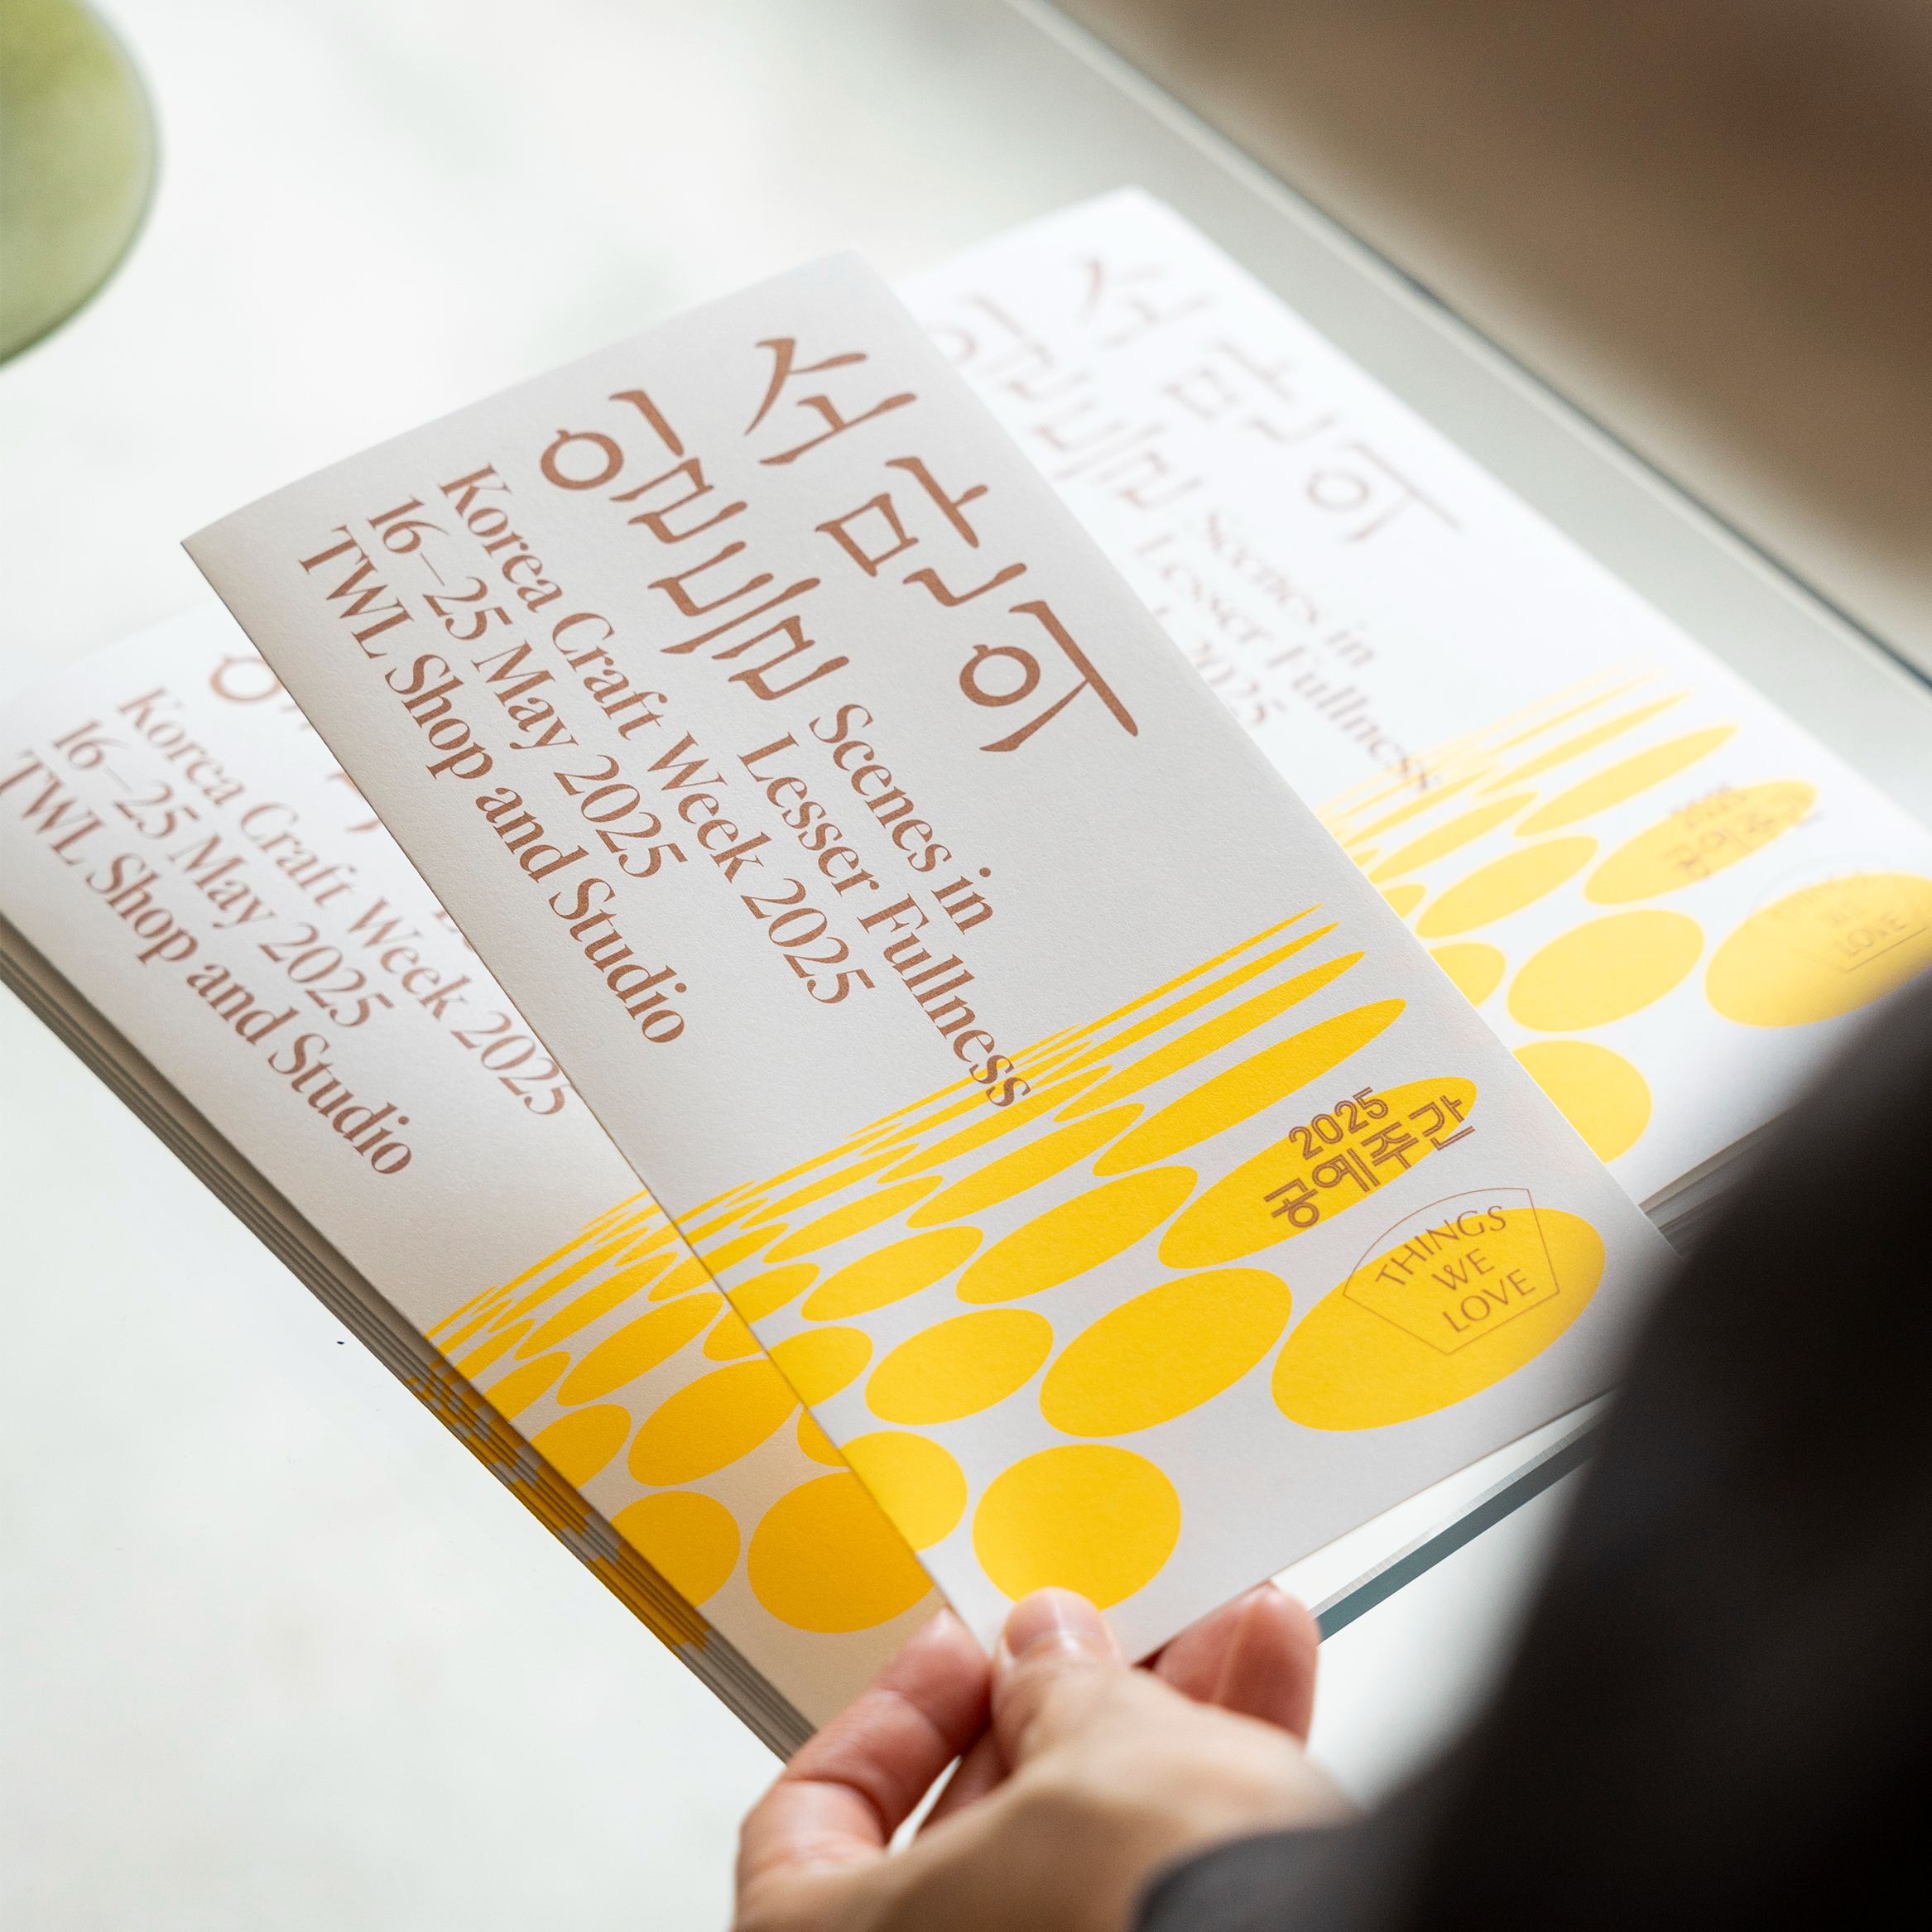 소만의
Scenes in
Lesser Fullness
Korea Craft Week 2025
16—25 May 2025
TWL Shop and Studio
2025
공예주간
THINGS
WE
LOVE
Korea Craft Week 2025
16—25 May 2025
TWL Shop and Studio
소만의
Scenes in
Lesser Fullness
2025
2025
공예주간
THINGS
WE
LOVE